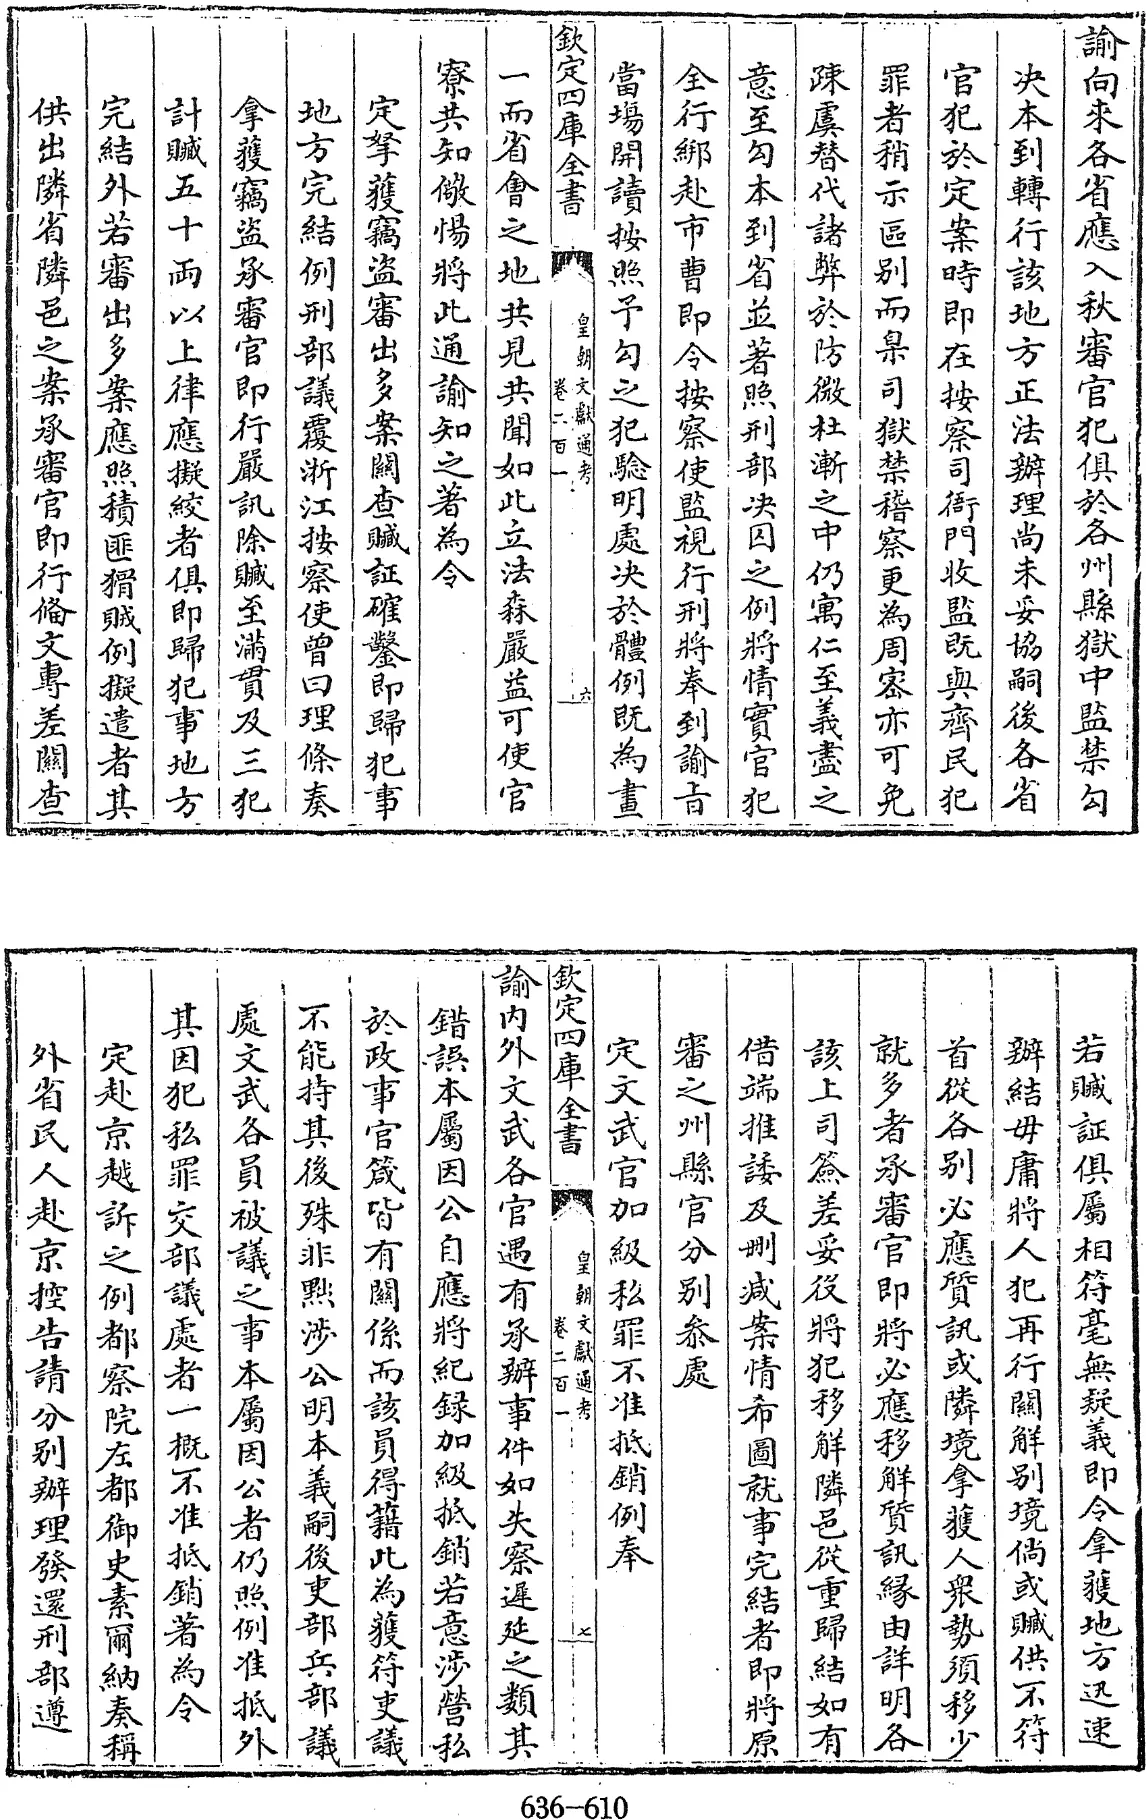 諭向來各省應入秋審官犯俱於各州縣獄中監禁勾
决本到轉行該地方正法辦理尚未妥協嗣後各省
官犯於定案時即在按察司衙門收監既與齊民犯
罪者稍示區别而臬司獄禁稽察更為周宻亦可免
疎虞替代諸弊於防微杜漸之中仍寓仁至義盡之
意至勾本到省並著照刑部决囚之例將情實官犯
全行綁赴市曹即令按察使監視行刑將奉到諭㫖
當場開讀按照予勾之犯騐明處决於體例既為畫
欽定四庫全書
皇朝文獻通考
卷二百一
六
一而省會之地共見共聞如此立法森嚴益可使官
寮共知儆惕將此通諭知之著為令
定拏獲竊盗審出多案關查贓証確鑿即歸犯事
地方完結例刑部議覆浙江按察使曾曰理條奏
拿獲竊盗承審官即行嚴訊除贓至滿貫及三犯
計贓五十兩以上律應擬絞者俱即歸犯事地方
完結外若審出多案應照積匪猾賊例擬遣者其
供出隣省隣邑之案承審官即行偹文專差關查
若贓証俱屬相符毫無疑義即令拿獲地方迅速
辦結毋庸將人犯再行關解别境倘或贓供不符
首從各别必應質訊或隣境拿獲人衆勢須移少
就多者承審官即將必應移解質訊緣由詳明各
該上司簽差妥役將犯移解隣邑從重歸結如有
借端推諉及刪减案情希圖就事完結者即將原
審之州縣官分别參處
定文武官加級私罪不准抵銷例奉
欽定四庫全書
皇朝文獻通考
卷二百一
七
諭内外文武各官遇有承辦事件如失察遲延之類其
錯誤本屬因公自應將紀録加級抵銷若意涉營私
於政事官箴皆有關係而該員得藉此為護符吏議
不能持其後殊非黜涉公明本義嗣後吏部兵部議
處文武各員被議之事本屬因公者仍照例准抵外
其因犯私罪交部議處者一概不准抵銷著為令
定赴京越訴之例都察院左都御史素爾納奏稱
外省民人赴京控告請分别辦理發還刑部遵
636-610